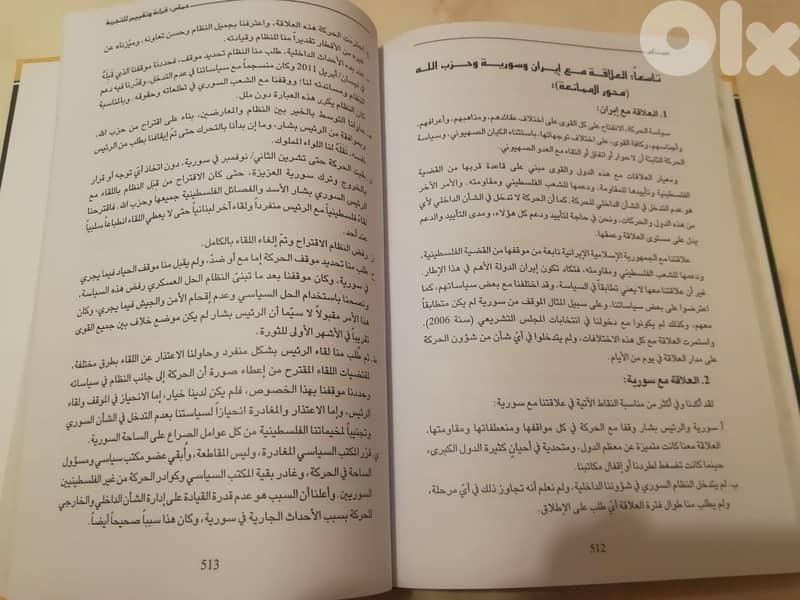 olx
حماس
تاسعاً: العلاقة مع إيران وسورية وحزب الله
(محور الممانعة):
1. العلاقة مع إيران:
سياسة الحركة، الانفتاح على كل القوى على اختلاف عقائدهم، ومذاهبهم، وأعراقهم،
وأجناسهم، وكافة القوى، على اختلاف توجهاتها، باستثناء الكيان الصهيوني، وسياسة
الحركة الثابتة أن لا حوار أو اتفاق أو التقاء مع العدو الصهيوني.
ومعيار العلاقات مع هذه الدول والقوى مبني على قاعدة قربها من القضية
الفلسطينية وتأييدها للمقاومة، ودعمها للشعب الفلسطيني ومقاومته. والأمر الآخر
هو عدم التدخل في الشأن الداخلي للحركة، كما أن الحركة لا تدخل في الشأن الداخلي لأي
من هذه الدول والحركات، ونحن في حاجة لتأييد ودعم كل هؤلاء، ومدى التأييد والدعم
يدل على مستوى العلاقة وعمقها.
علاقتنا مع الجمهورية الإسلامية الإيرانية نابعة من موقفها من القضية الفلسطينية،
ودعمها للشعب الفلسطيني ومقاومته، فتكاد تكون إيران الدولة الأهم في هذا الإطار.
غير أن علاقتنا معها لا يعني تطابقاً في السياسة، وقد اختلفنا مع بعض سياساتهم، كما
اعترضوا على بعض سياساتنا، وعلى سبيل المثال الموقف من سورية لم يكن متطابقاً
معهم، وكذلك لم يكونوا مع دخولنا في انتخابات المجلس التشريعي (سنة 2006).
واستمرت العلاقة مع كل هذه الاختلافات، ولم يتدخلوا في أيّ شأن من شؤون الحركة
على مدار العلاقة في يوم من الأيام.
2. العلاقة مع سورية:
لقد أكدنا وفي أكثر من مناسبة النقاط الآتية في علاقتنا مع سورية:
أ. سورية والرئيس بشار وقفا مع الحركة في كل مواقفها ومنعطفاتها ومقاومتها،
العلاقة معنا كانت متميزة عن معظم الدول، ومتحدية في أحيانٍ كثيرة الدول الكبرى،
حينما كانت تضغط لطردنا أو إقفال مكاتبنا.
ب. لم يتدخل النظام السوري في شؤوننا الداخلية، ولم نعلم أنه تجاوز ذلك في أيّ مرحلة،
ولم يطلب منا طوال فترة العلاقة أيّ طلب على الإطلاق.
512
حماس: قراءة وتقييم للتجربة
احترمت الحركة هذه العلاقة، واعترفنا بجميل النظام وحسن تعاونه، وميّزناه عن
غيره من الأقطار تقديراً منا للنظام وقيادته.
بدء الأحداث الداخلية، طلب منا النظام تحديد موقف، فحددنا موقفنا الذي قبله
في نيسان/ أبريل 2011 وكان منسجماً مع سياساتنا في عدم التدخل، وقدّرنا فيه دعم
النظام ومساندته لنا، ووقفنا مع الشعب السوري في تطلعاته وحقوقه. وبالمناسبة
كان النظام يكرر هذه العبارة دون ملل.
حاولنا التوسط بالخير بين النظام والمعارضين، بناء على اقتراح من حزب الله،
وبموافقة من الرئيس بشار، وما إن بدأنا بالتحرك حتى تمّ إيقافنا بطلب من الرئيس
نفسه، نقله لنا اللواء المملوك.
بقيت الحركة حتى تشرين الثاني/ نوفمبر في سورية، دون اتخاذ أي توجه أو قرار
بالخروج وترك سورية العزيزة، حتى كان الاقتراح من قبَل النظام باللقاء مع
الرئيس السوري بشار الأسد والفصائل الفلسطينية جميعها وحزب الله، فاقترحنا
لقاءً فلسطينياً مع الرئيس منفرداً ولقاء آخر لبنانياً حتى لا يعطي اللقاء انطباعاً سلبياً
عند أحد.
ز. رفض النظام الاقتراح وتمّ إلغاء اللقاء بالكامل.
ح. طلب منا تحديد موقف الحركة إما مع أو ضدّ، ولم يقبل منا موقف الحياد فيما يجري
في سورية، وكان موقفنا بعد ما تبنى النظام الحل العسكري رفض هذه السياسة،
ونصحنا باستخدام الحل السياسي وعدم إقحام الأمن والجيش فيما يجري، وكان
هذا الأمر مقبولاً لا سيّما أن الرئيس بشار لم يكن موضع خلاف بين جميع القوى
تقريباً في الأشهر الأولى للثورة.
ط. ثم طُلب منا لقاء الرئيس بشكل منفرد وحاولنا الاعتذار عن اللقاء بطرق مختلفة،
لمقتضيات اللقاء المقترح من إعطاء صورة أن الحركة إلى جانب النظام في سياساته
وحددنا موقفنا بهذا الخصوص، فلم يكن لدينا خيار، إما الانحياز في الموقف ولقاء
الرئيس، وإما الاعتذار والمغادرة انحيازاً لسياستنا بعدم التدخل في الشأن السوري
وتجنيباً لمخيماتنا الفلسطينية من كل عوامل الصراع على الساحة السورية.
ي. قرّر المكتب السياسي المغادرة، وليس المقاطعة، وأُبقي عضو مكتب سياسي ومسؤول
الساحة في الحركة، وغادر بقية المكتب السياسي وكوادر الحركة من غير الفلسطينيين
السوريين. وأعلنا أن السبب هو عدم قدرة القيادة على إدارة الشأن الداخلي والخارجي
للحركة بسبب الأحداث الجارية في سورية، وكان هذا سبباً صحيحاً أيضاً.
513